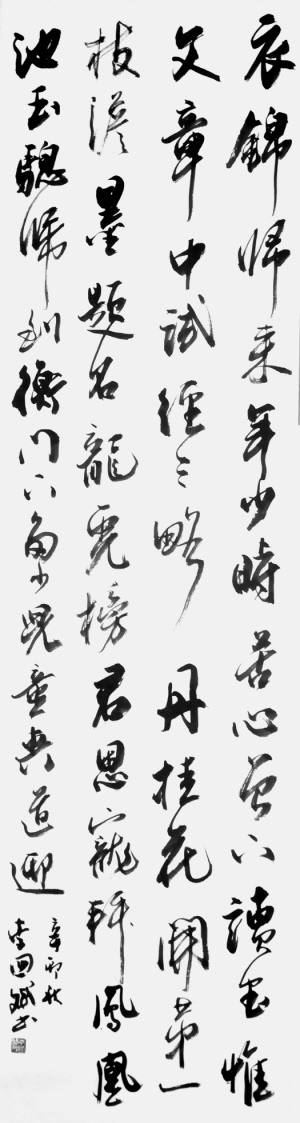 衣錦歸来年少時苦心窗下讀書惟
文章中試經三略丹桂花開第一
枝淡墨題名龍虎榜君恩寵拜鳳凰
池玉驄歸到衡門下多少兒童共道迎
辛卯秋
李回斌书